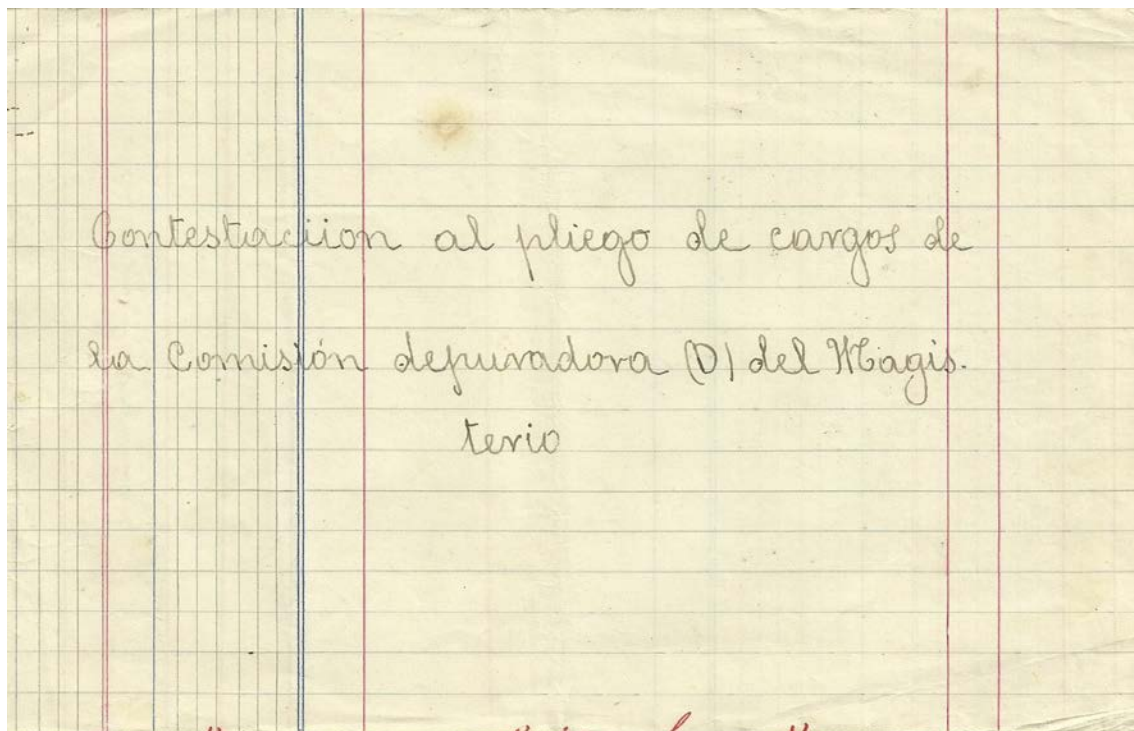 Contestaciion al pliego de cargos de
la Comisión depuradora (D) del Magis-
terio